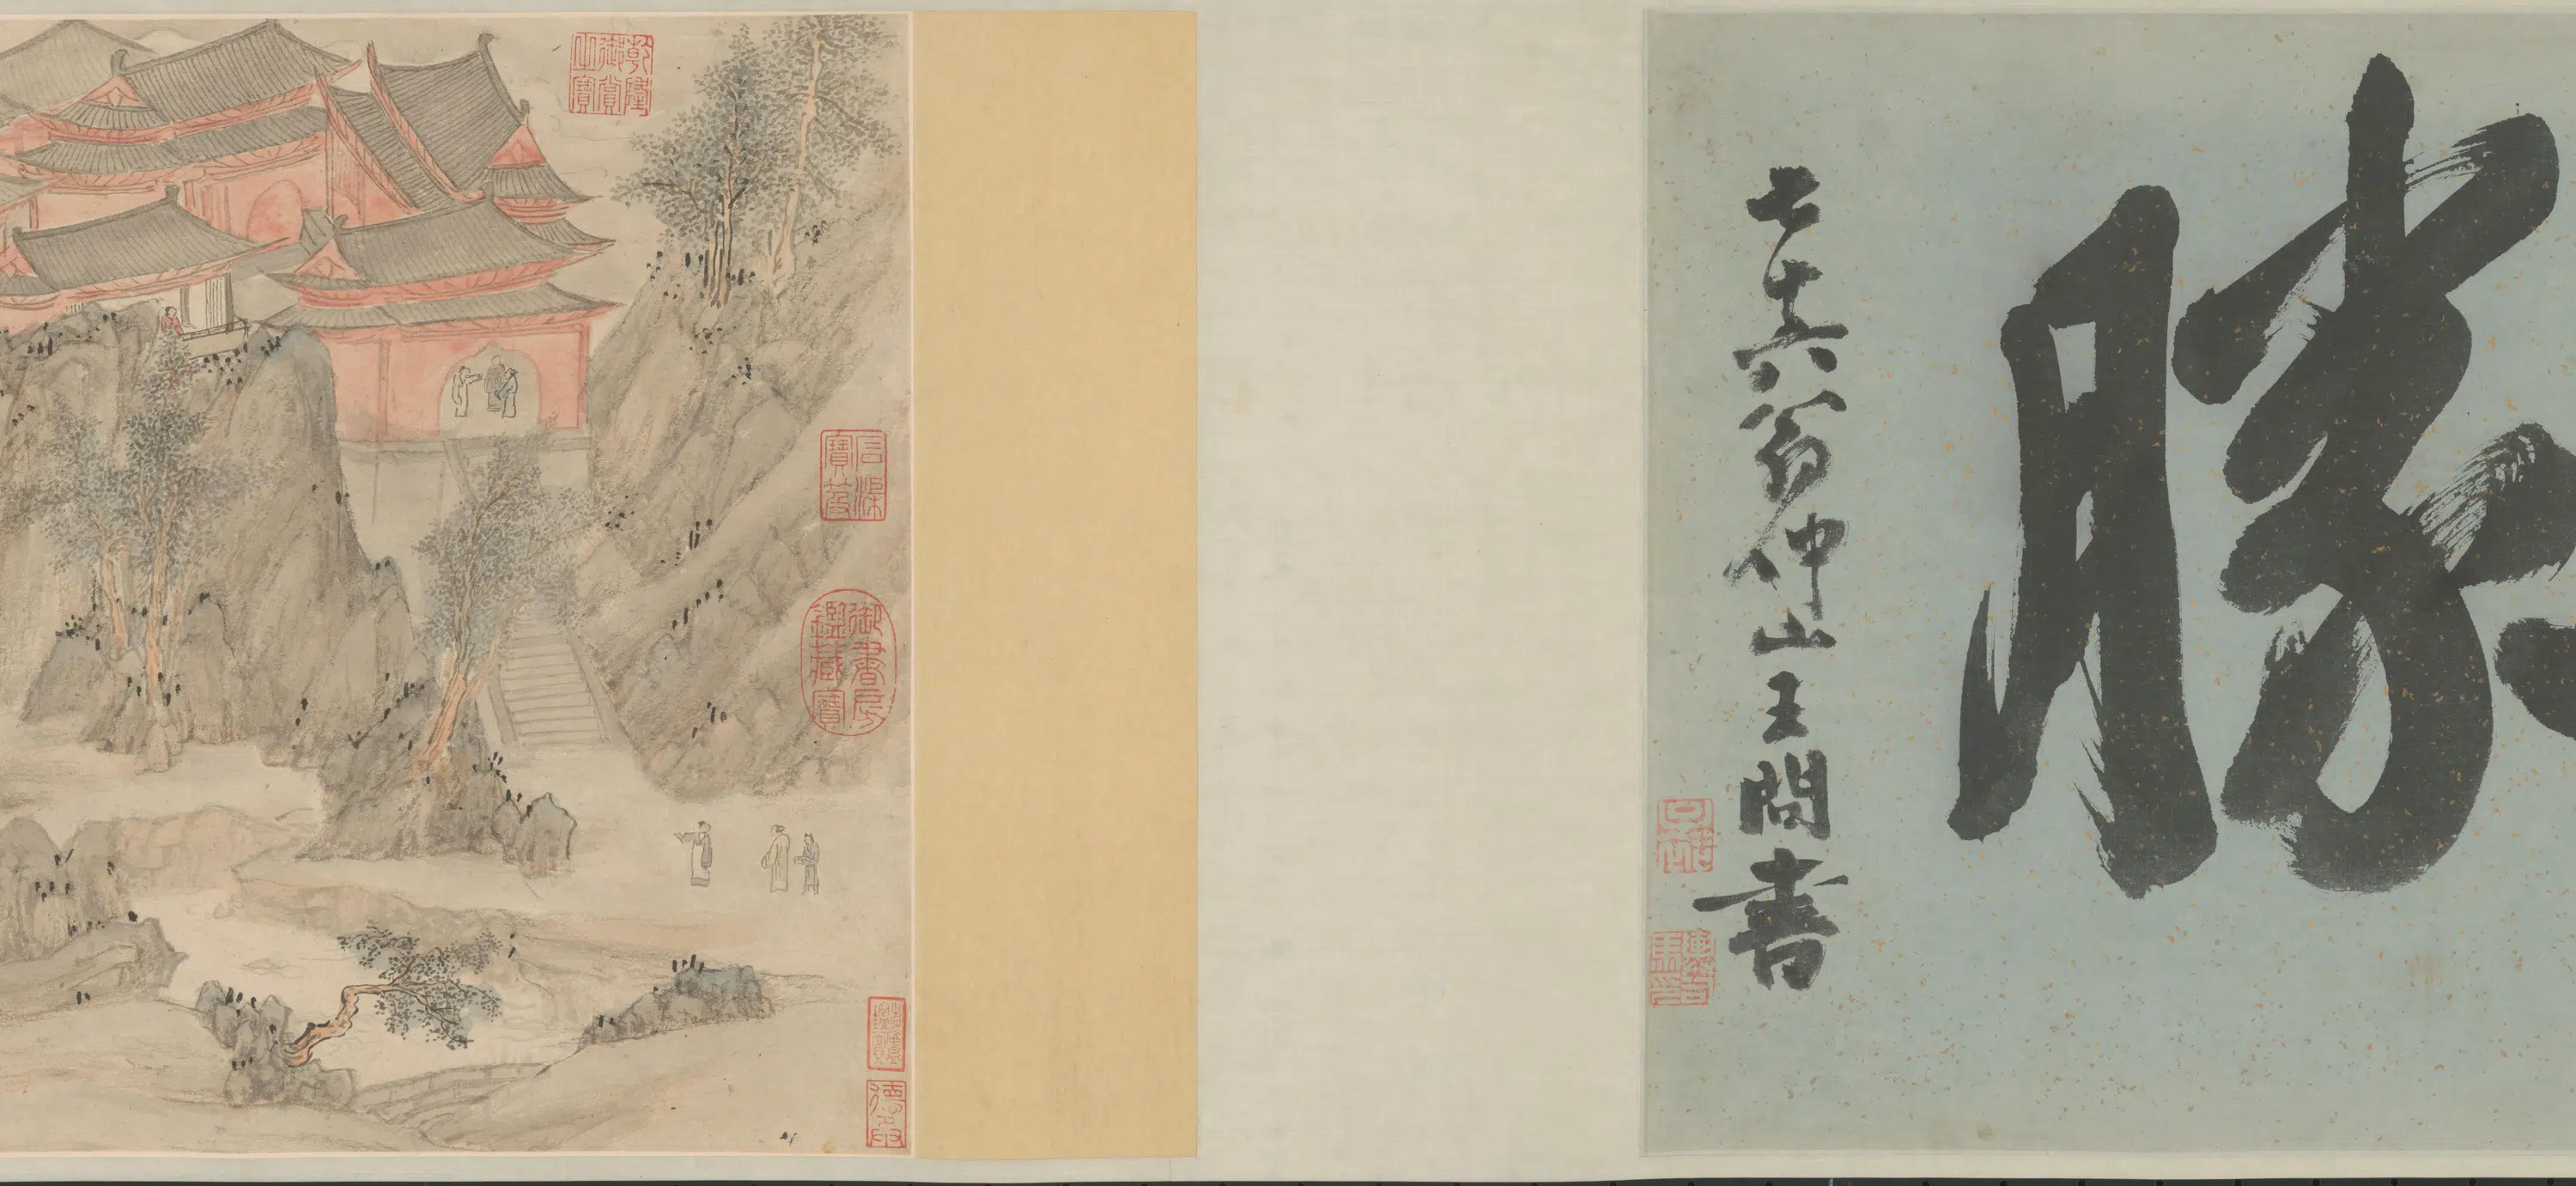 勝
七十六翁仲山王問書
乾隆御賞之寶
石渠寶笈
御書房鑑藏寶